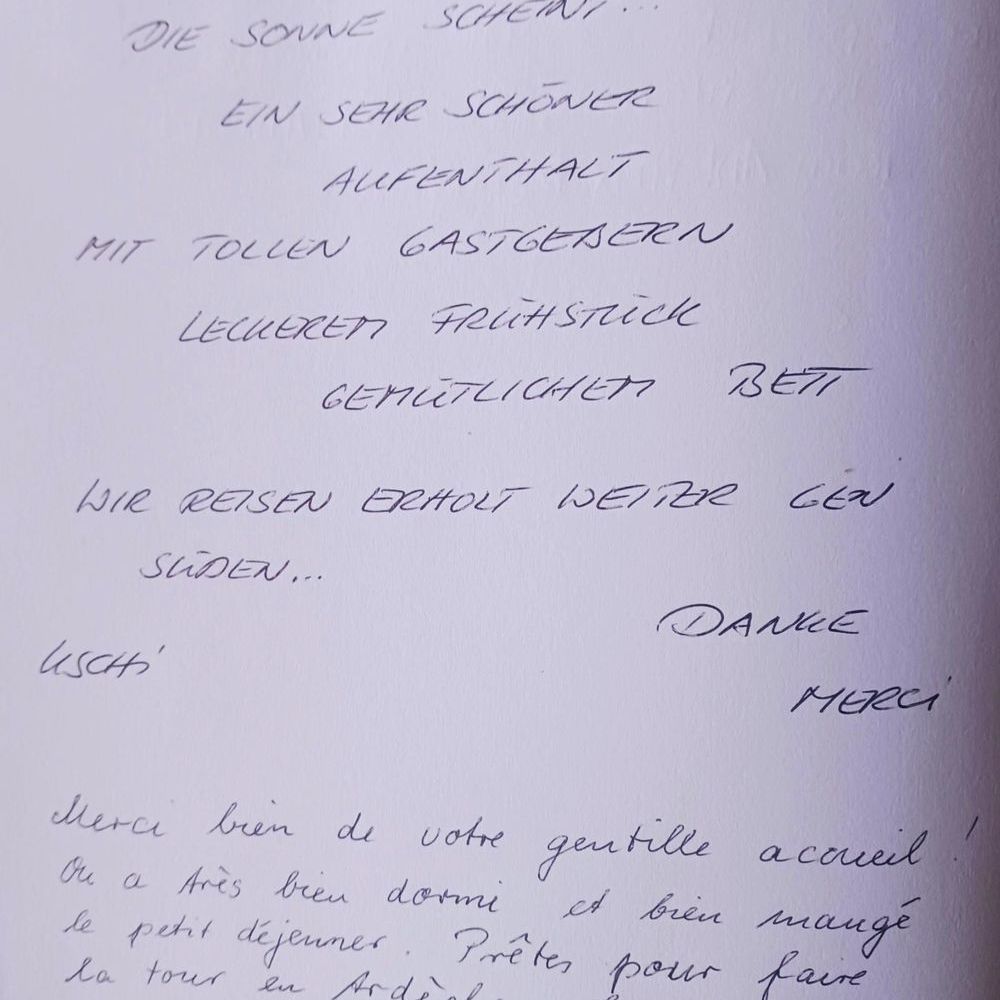 DIE SONNE SCHEINT...
EIN SEHR SCHÖNER
AUFENTHALT
MIT TOLLEN GASTGEBERN
LECKEREM FRÜHSTÜCK
GEMÜTLICHEM BETT
WIR REISEN ERHOLT WEITER GEN
SÜDEN...
DANKE
USCHi
MERCi
Merci bien de votre gentille acoueil !
On a très bien dormi et bien mangé
le petit déjeuner. Prêtes pour faire
la tour en